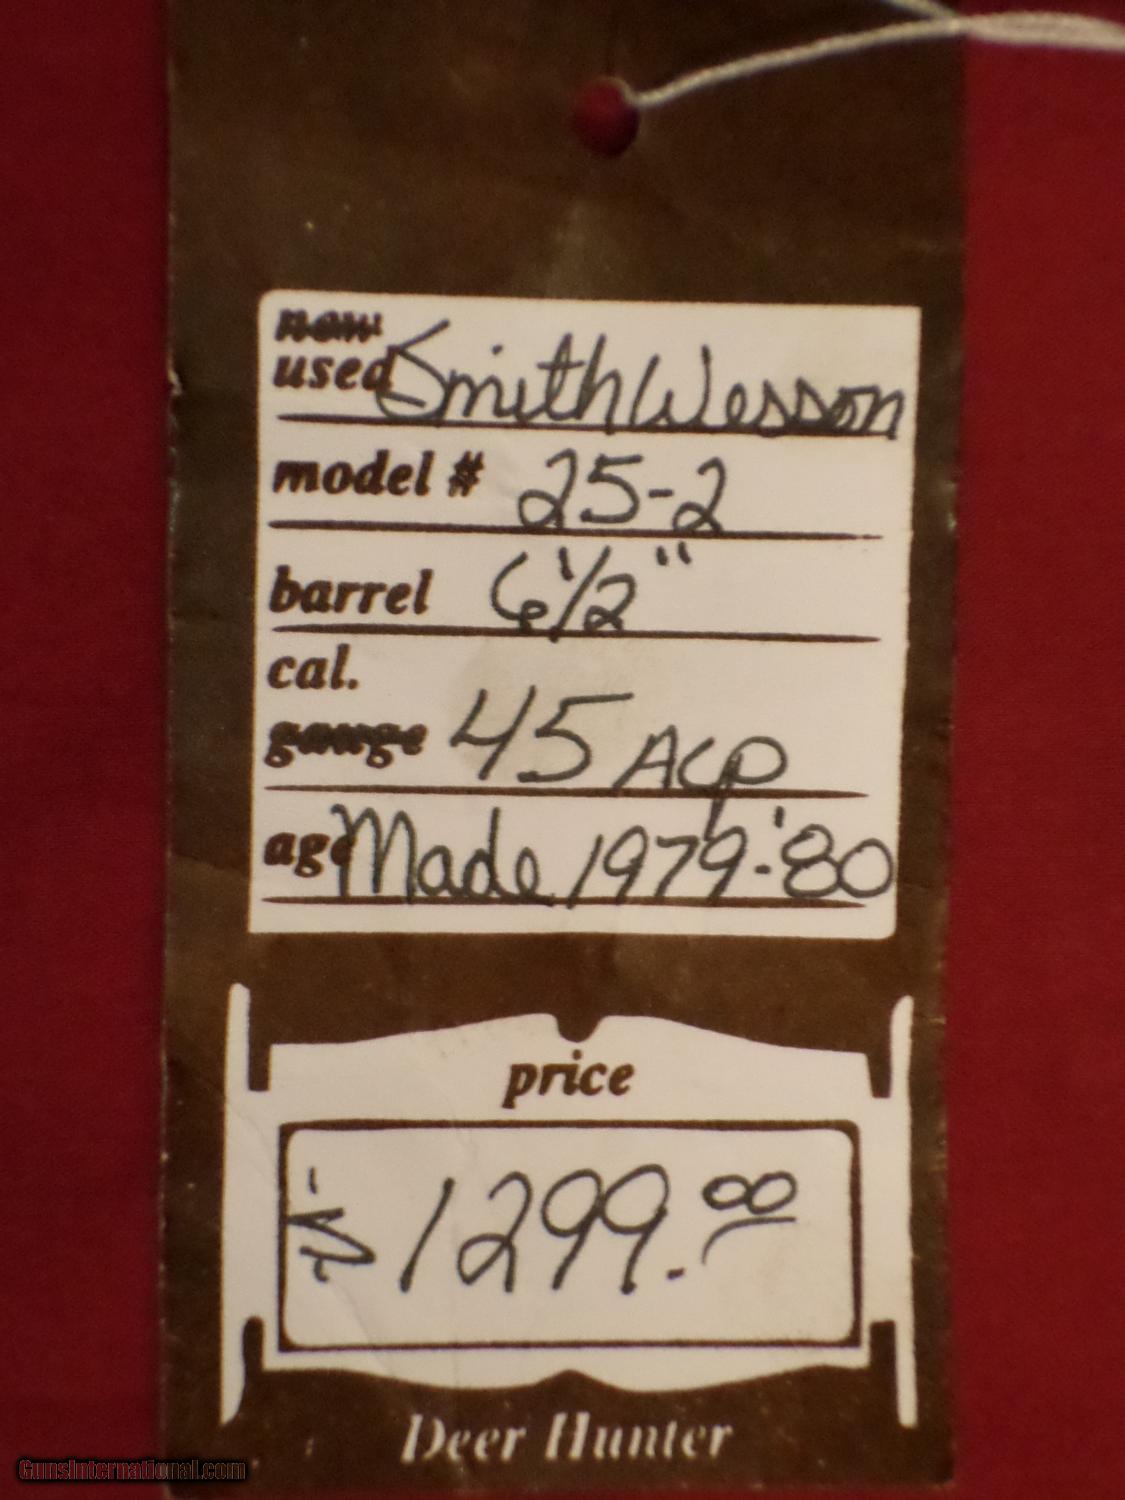 new
used Smith Wesson
model # 25-2
barrel 6 1/2"
cal.
gauge 45 ACP
age Made 1979-'80
price
1299.00
Deer Hunter
GunsInternational.com